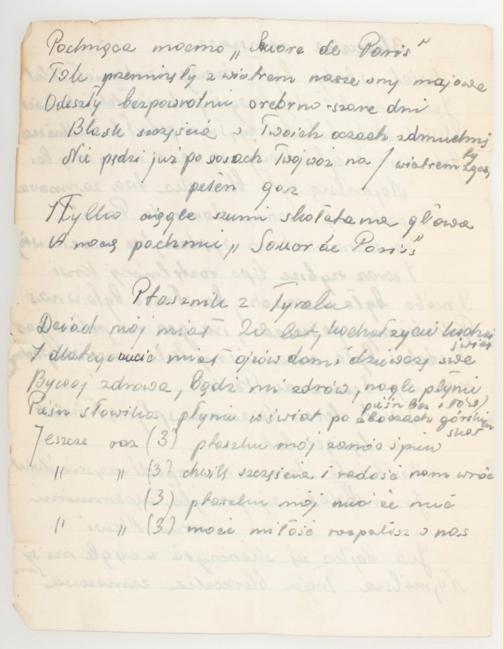 Pachnąca mocno „Suare de Paris"
Tak przeminęły z wiatrem nasze sny majowe
Odeszły bezpowrotnie srebrno-szare dni
Blask szczęścia w Twoich oczach zdmuchnięty
Nie pędzi już po szosach Twój wóz na / wiatrem zgasł
pełen gaz
Tylko ciągle szumi skołatana głowa
A nocą pachnie „Souar de Paris"
Ptasznik z Tyrolu
Dziad mój miał 20 lat, kochał życie kochał
świat
I dlatego miał ojców dom, dziewczę swe
Bywaj zdrowa, bądź mi zdrów, nagle płynie
pieśń bez słów
Pieśń słowika płynie w świat po zboczach górskich
skał
Jeszcze raz (3) ptaszku mój zanuć śpiew
" " (3) chwilę szczęścia i radość nam wróć
(3) ptaszku mój nuć że nuć
" " (3) może miłość rozpalisz w nas